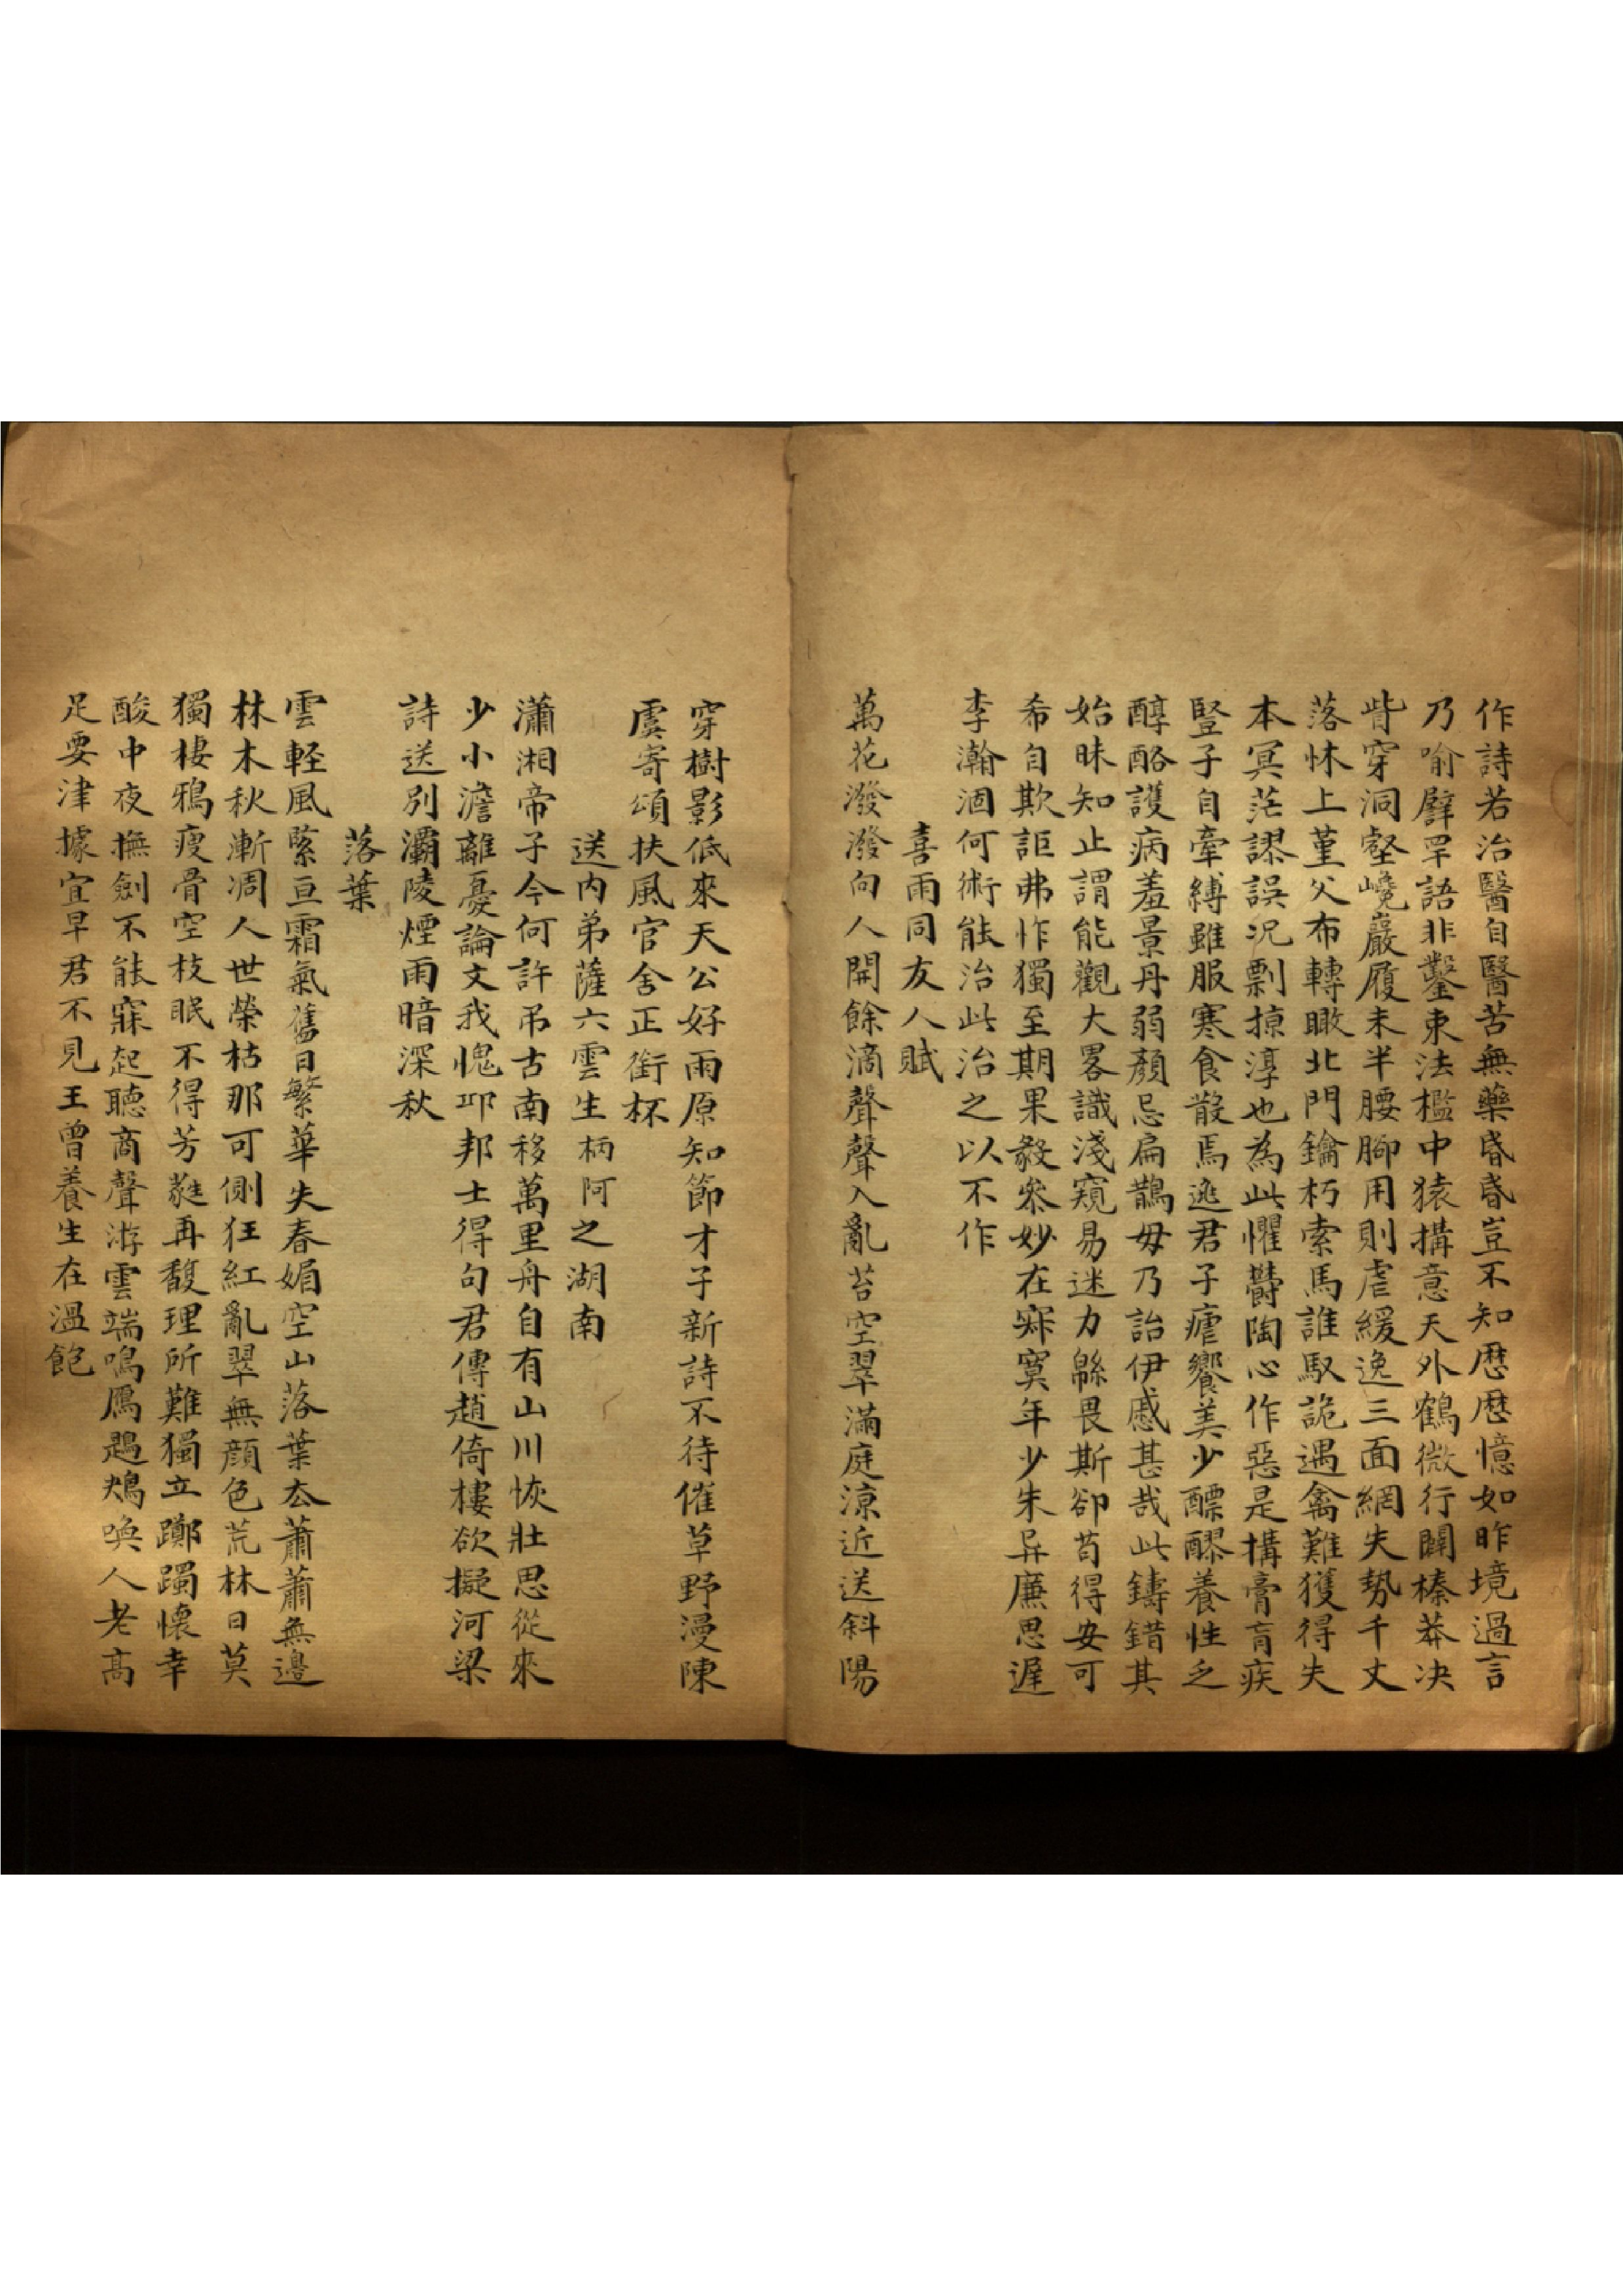 作詩若治醫自醫苦無藥昏昏豈不知歷歷憶如昨境過言
乃喻臂罕語非鑿束法檻中猿搆意天外鶴微行闢榛莽决
背穿洞壑巉巖履未半腰腳用則虐緩逸三面網失勢千丈
落怵上堇父布轉瞰北門鑰朽索馬誰馭詭遇禽難獲得失
本冥茫謬誤況剽掠淳也為此懼鬱陶心作惡是搆膏肓疾
豎子自牽縛雖服寒食散焉逃君子瘧饗美少醥醪養性乏
醇酪護病羞景丹弱顏忌扁鵲毋乃詒伊慼甚哉此鑄錯其
始昧知止謂能觀大畧識淺窺易迷力緜畏斯卻苟得安可
希自欺詎弗怍獨至期果毅叅妙在寂寞年少朱异廉思遲
李瀚涸何術能治此治之以不作
喜雨同友人賦
萬花潑潑向人開餘滴聲聲入亂苔空翠滿庭涼近送斜陽
穿樹影低來天公好雨原知節才子新詩不待催草野漫陳
虞寄頌扶風官舍正銜杯
送内弟薩六雲生柄阿之湖南
瀟湘帝子今何許吊古南移萬里舟自有山川恢壯思從來
少小澹離憂論文我愧邛邦士得句君傳趙倚樓欲擬河梁
詩送別灞陵煙雨暗深秋
落葉
雲輕風緊亘霜氣舊日繁華失春媚空山落葉厺蕭蕭無邊
林木秋漸凋人世榮枯那可側狂紅亂翠無顔色荒林日莫
獨棲鴉瘦骨空枝眠不得芳蕤再馥理所難獨立躑躅懷幸
酸中夜撫劍不能寐起聽商聲游雲端鳴鴈鶗鴂喚人老高
足要津據宜早君不見王曾養生在溫飽